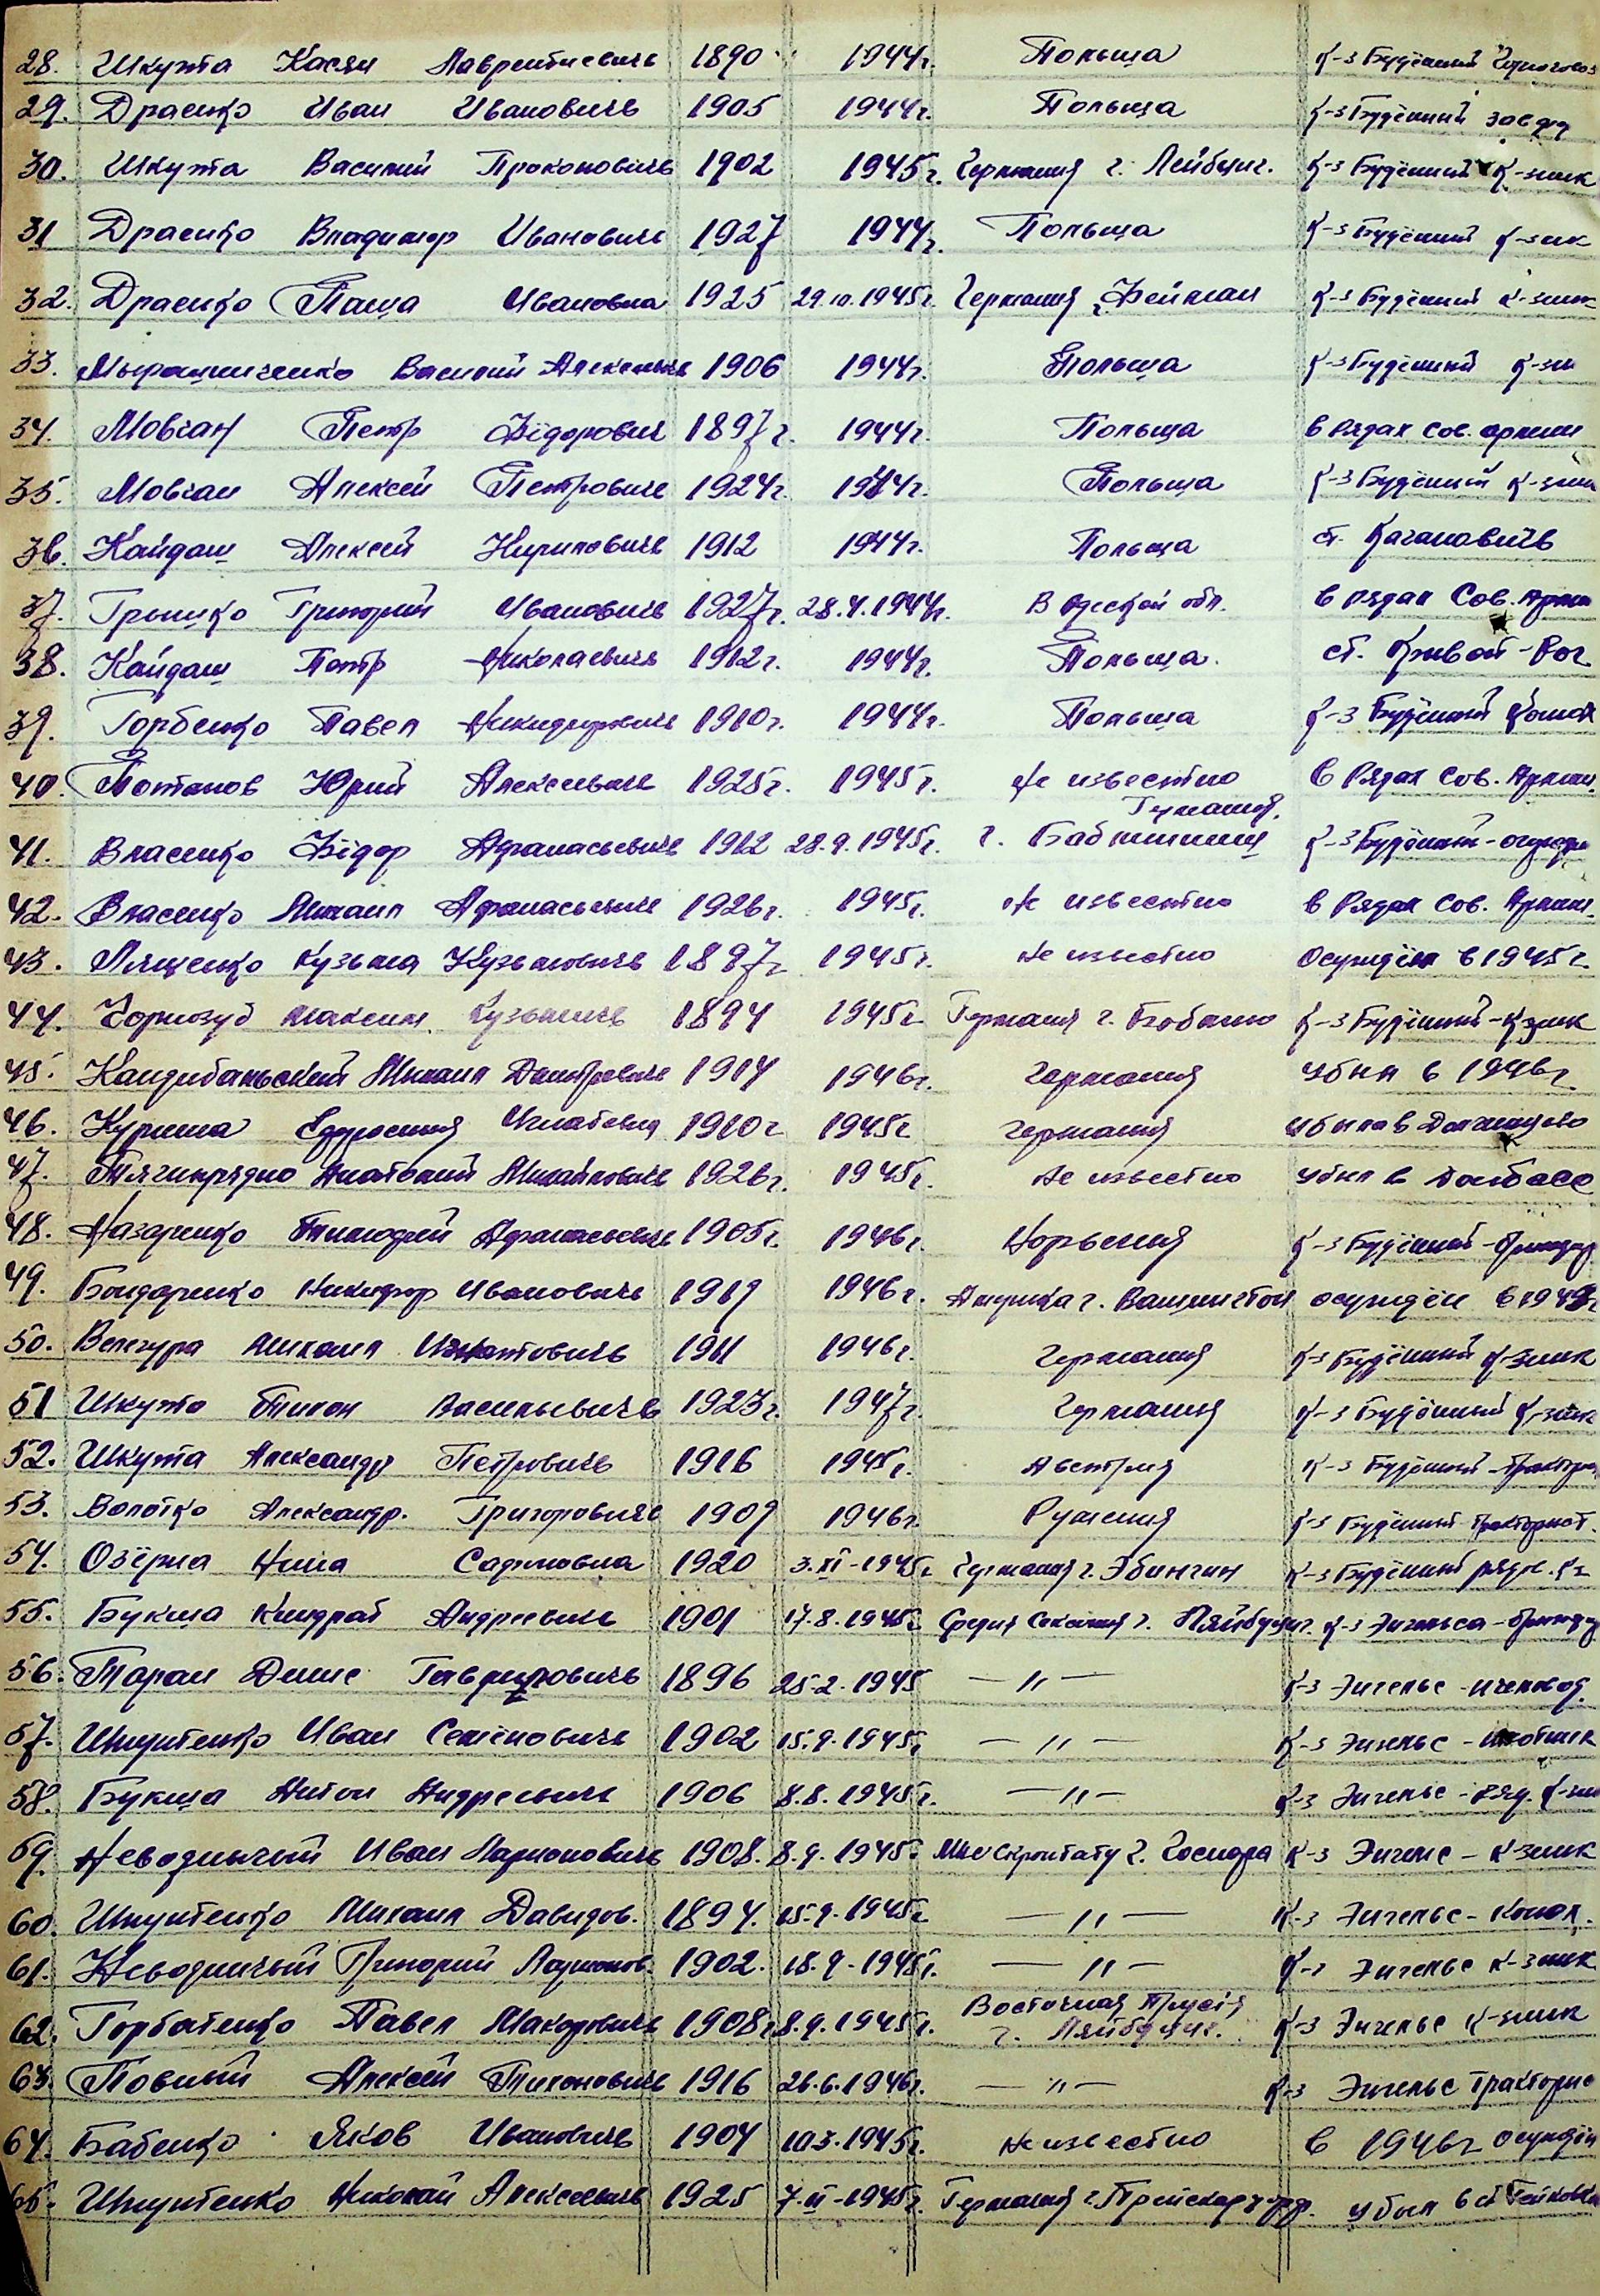 28. Шкута Касян Лаврентиевичь 1890 1944г. Польща К-з Будённий
29. Драенко Иван Ивановичь 1905 1944г. Польща К-з Будённий
30. Шкута Василий Прокоповичь 1902 1945г. Германия г. Лейбциг. К-з Будённий К-зник
31 Драенко Владимир Ивановичь 1927 1944г. Польща К-з Будённий К-зник
32. Драенко Паша Ивановна 1925 29.10.1945г. Германия г. К-з Будённий К-зник
33. Василий 1906 1944г. Польща К-з Будённий К-зн
34. Мовчан Петр Фёдорович 1897г. 1944г. Польща в Рядах Сов. армии
35. Мовчан Алексей Петровичь 1924г. 1944г. Польща К-з Будённий К-зник
36. Кайдаш Алексей Кириловичь 1912 1944г. Польща ст. Кагановичь
37. Грынько Григорий Ивановичь 1927г. 28.4.1944г. В Одеской обл. в рядах Сов. Арми
38. Кайдаш Петр Николаевичь 1912г. 1944г. Польща. ст. Кривой-Рог
39. Горбенко Павел Никифоровичь 1910г. 1944г. Польща К-з Будённий
40. Потапов Юрий Алексеевичь 1925г. 1945г. Не известно в Рядах Сов. Армии.
41. Власенко Фёдор Афанасьевичь 1912 28.9.1945г. Германия, г. К-з Будённий
42. Власенко Михаил Афанасьевичь 1926г. 1945г. Не известно в Рядах Сов. Армии.
43. Лященко Кузьма Кузьмовичь 1897г. 1945г. Не известно Осуждён в 1945г.
44. Чорнозуб Максим Кузьмичь 1894 1945г. Германия г. К-з Будённий-К-зник
45. Михаил Дмитровичь 1914 1946г. Германия Убил в 1946г.
46. Игнатовна 1910г. 1945г. Германия убыла в Долгинцево
47. Тягнирядно Анатолий Михайловичь 1926г. 1945г. Не известно Убыл в Донбасс
48. Назаренко Тимофей Афанасьевичь 1905г. 1946г. Норвегия К-з Будённий
49. Бондаренко Никифор Ивановичь 1919 1946г. Америка г. Вашингтон осуждён в
50. Велегура Михаил Игнатовичь 1911 1946г. Германия К-з Будённий К-зник
51 Шкута Тихон Васильевичь 1923г. 1947г. Германия К-з Будённий К-зник
52. Шкута Александр Петровичь 1916 1945г. Австрия К-з Будённий-
53. Волотко Александр. Григоровичь 1909 1946г. Румения К-з Будённий-Тракторист.
54. Озёрна Нина 1920 3.XI-1945г. Германия г. Эбингин К-з Будённий рядов.
55. Букша Кондрат Андреевичь 1901 17.8.1945г. г. Ляйбциг. К-з Энгельса-
56. Таран Денис Гавриловичь 1896 25.2.1945 —〃— К-з Энгельс-пчеловод.
57. Шпунтенко Иван Семёновичь 1902 15.9.1945г. —〃— К-з Энгельс-
58. Букша Антон Андреевичь 1906 8.8.1945г. —〃— К-з Энгельс-ряд. К-зник
59. Неводничий Иван Ларионовичь 1908. 8.9.1945г. К-з Энгельс-К-зник
60. Шпунтенко Михаил Давидов. 1894. 15.9.1945г. —〃— К-з Энгельс-
61. Неводничий Григорий Ларионов. 1902. 18.9-1945г. —〃— К-з Энгельс К-зник
62. Горбатенко Павел Макаровичь 1908г. 8.9.1945г. Восточная Прусія г. Ляйбциг. К-з Энгельс К-зник
63. Повший Алексей Тихоновичь 1916 26.6.1946г. —〃— К-з Энгельс Тракторис
64. Бабенко Яков Ивановичь 1904 10.3.1945г. Не известно в 1946г осуждён
65. Шпунтенко Николай Алексеевичь 1925 1945г. Германия г. Убыл в